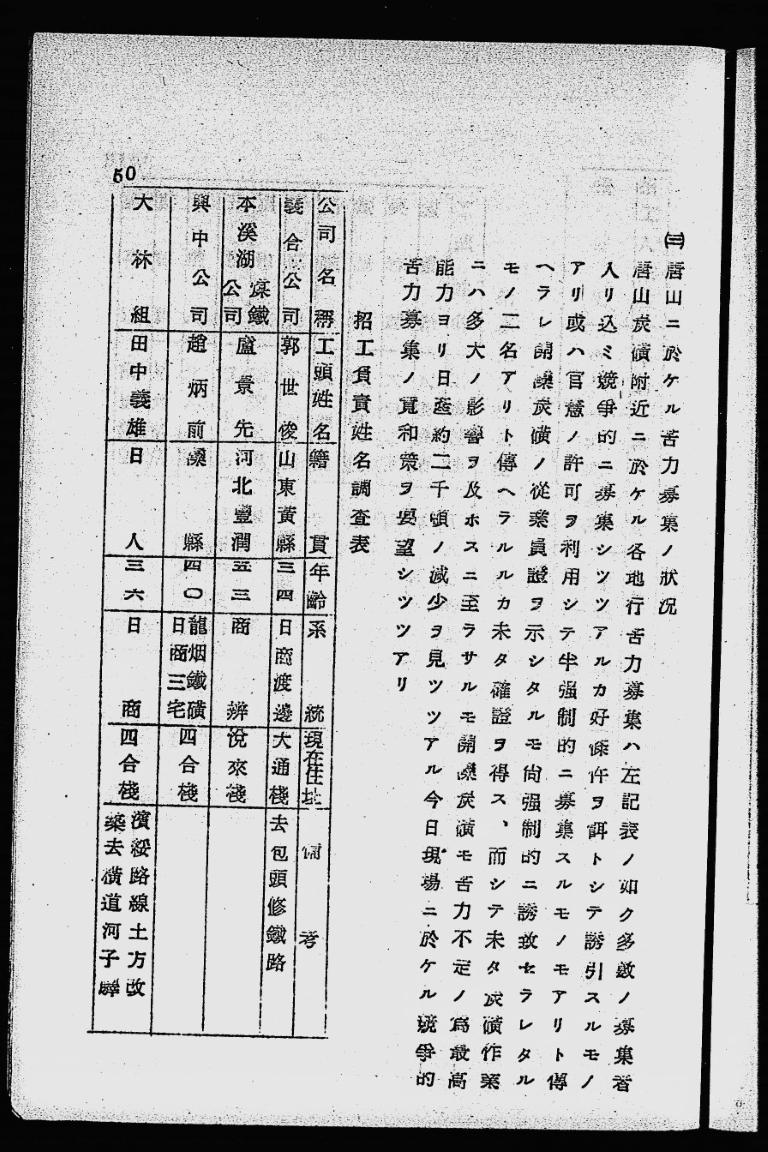 ㈢ 唐山ニ於ケル苦力募集ノ狀況
唐山炭礦附近ニ於ケル各地行苦力募集ハ左記表ノ如ク多數ノ募集者
入リ込ミ競爭的ニ募集シツツアルカ好條件ヲ餌トシテ誘引スルモノ
アリ或ハ官憲ノ許可ヲ利用シテ半强制的ニ募集スルモノモアリト傳
ヘラレ開灤炭礦ノ從業員證ヲ示シタルモ尙强制的ニ誘致セラレタル
モノ二名アリト傳ヘラルルカ未タ確證ヲ得ス、而シテ未タ炭礦作業
ニハ多大ノ影響ヲ及ホスニ至ラサルモ開灤炭礦モ苦力不足ノ爲最高
能力ヨリ日產約二千頓ノ減少ヲ見ツツアル今日現場ニ於ケル競爭的
苦力募集ノ寬和策ヲ要望シツツアリ
招工負責姓名調查表
公司名稱 工頭姓名 籍貫 年齡 系統 現在住址 備考
義合公司 郭世俊 山東黃縣 三四 日商渡邊 大通棧 去包頭修鐵路
本溪湖煤鐵公司 盧景先 河北豐潤 五三 商辨 悅來棧
興中公司 趙炳前 灤縣 四〇 龍烟鐵礦日商三宅 四合棧
大林組 田中義雄 日人 三六 日商 四合棧 濱綏路線土方改築去橫道河子驛
50